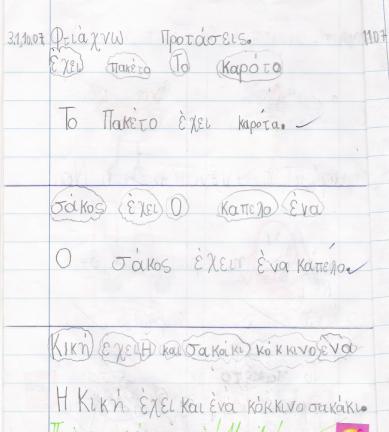 31,10,07 Φτιάχνω Προτάσεις. 11.07
έχει πακέτο Το καρότο
Το Πακέτο έχει καρότα.
σάκος έχει Ο καπελο ένα
Ο σάκος έχει ένα καπέλο.
Κική έχει Η και σακάκι κόκκινο ένα
Η Κική έχει και ένα κόκκινο σακάκι.